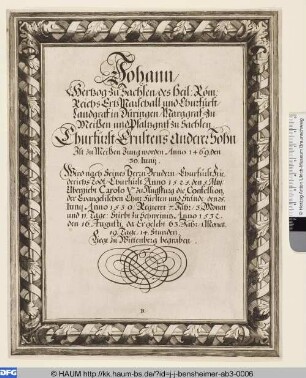 Johann
Hertzog zu Sachsen des Heil: Röm:
Reichs Ertz Marschall und Churfürst
Landgraf in Düringen Marggraf zu
Meißen und Pfaltzgraf zu Sachsen
Churfürst Ernstens Andere Sohn
Ist zu Meißen Jung worden Anno 1469 den
30. Junij.
Wird nach Seines Herrn Brudern Churfürst Fri-
derichs Todt Churfürst Anno 1525 den 5 May
Übergiebt Carolo V zu Augsburg die Confession
der Evangelischen Chur Fürsten und Stände
Anno 1530 Regieret 7. Jahr: 3 Monat
und 11 Tage Stirbt zu Schweinitz Anno 1532
den 16 Augusti da Er gelebt 63. Jahr 1 Monat
19. Tage. 14. Stunden
Liegt zu Wittenberg begraben
DFG
© HAUM http://kk.haum-bs.de/?id=j-j-bensheimer-ab3-0006